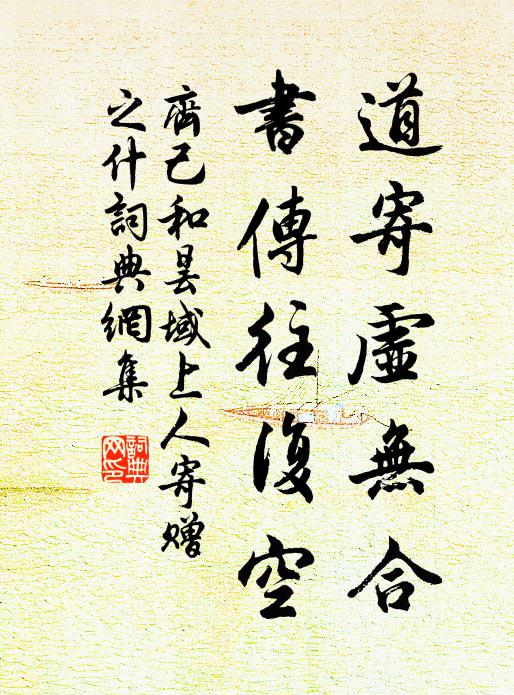 道寄虛無合
書傳往復空
齊己和曇域上人寄贈
之什詞典網集
詞典
网印